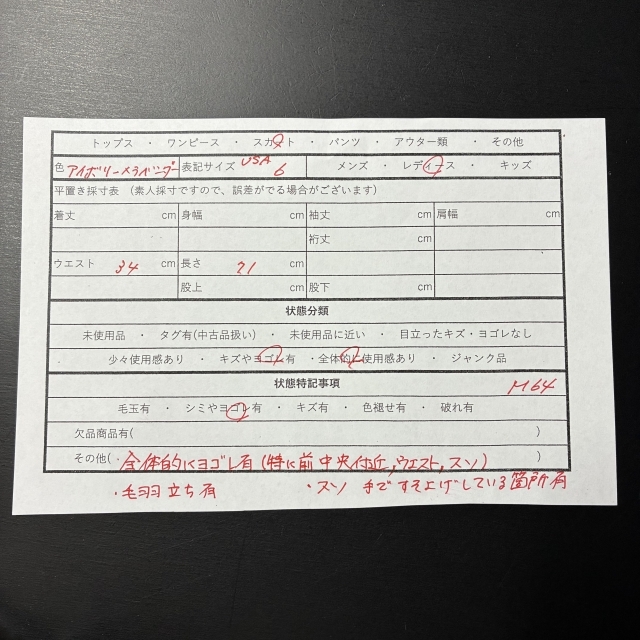 トップス ・ ワンピース ・ スカート ・ パンツ ・ アウター類 ・ その他
色 アイボリー×ラベンダー 表記サイズ USA 6 メンズ ・ レディース ・ キッズ
平置き採寸表 （素人採寸ですので、誤差がでる場合がございます）
着丈 cm 身幅 cm 袖丈 cm 肩幅 cm
裄丈 cm
ウエスト 34 cm 長さ 71 cm
股上 cm 股下 cm
状態分類
未使用品 ・ タグ有(中古品扱い) ・ 未使用品に近い ・ 目立ったキズ・ヨゴレなし
少々使用感あり ・ キズやヨゴレ有 ・全体的に使用感あり ・ ジャンク品
状態特記事項 M64
毛玉有 ・ シミやヨゴレ有 ・ キズ有 ・ 色褪せ有 ・ 破れ有
欠品商品有( )
その他( ・全体的にヨゴレ有(特に前中央付近,ウエスト,スソ) )
・毛羽立ち有 ・スソ 手ですそ上げしている箇所有